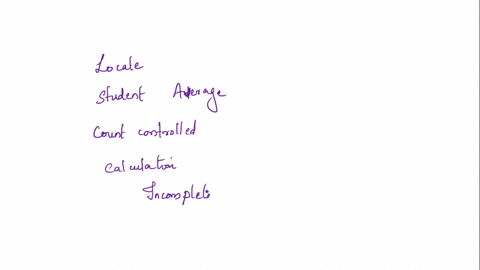 Locale
Student Average
Count controlled
Calculation
Incomplete